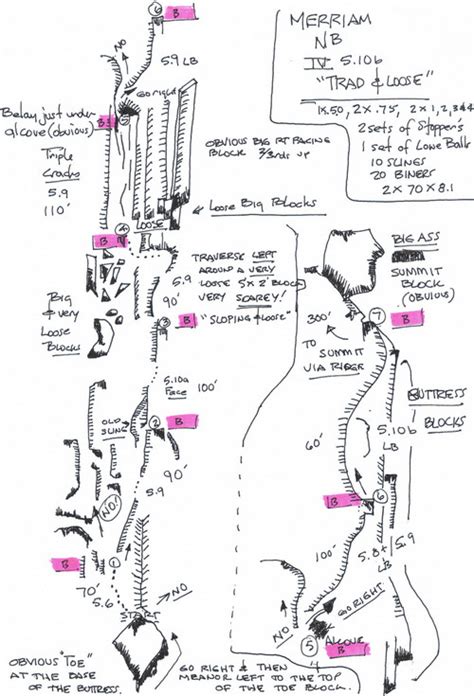 MERRIAM
NB
IV 5.10b
"TRAD & LOOSE"
1x.50, 2x.75, 2x1,2,3&4
2 SETS OF STOPPERS
1 SET OF LOWE BALLS
10 SLINGS
20 BINERS
2 X 70 X 8.1
6
B
NO
5.9 LB
GO RIGHT
Belay just under
alcove (obvious)
B
5
Triple
Cracks
5.9
110'
OBVIOUS BIG RT FACING
BLOCK 2/3rds UP
Loose Big Blocks
LOOSE
4
B
TRAVERSE LEFT
AROUND A VERY
LOOSE 5x2' BLOCK
VERY SCAREY!
"SLOPING & LOOSE"
5.9
90'
3
B
Big
& very
Loose
Blocks
5.10a
Face
100'
OLD
SLING
2
B
90'
5.9
NO!
B
1
70'
5.6
START
NO
OBVIOUS "TOE"
AT THE BASE
OF THE BUTTRESS.
GO RIGHT & THEN
MEANOR LEFT TO THE TOP
OF THE TOE BLOCK.
BIG ASS
SUMMIT
BLOCK
(OBVIOUS)
300'
7
B
TO
SUMMIT
VIA RIDGE
BUTTRESS
BLOCKS
5.10b
LB
60'
B
6
100'
5.8+
5.9
LB
GO RIGHT
NO
5
ALCOVE
B